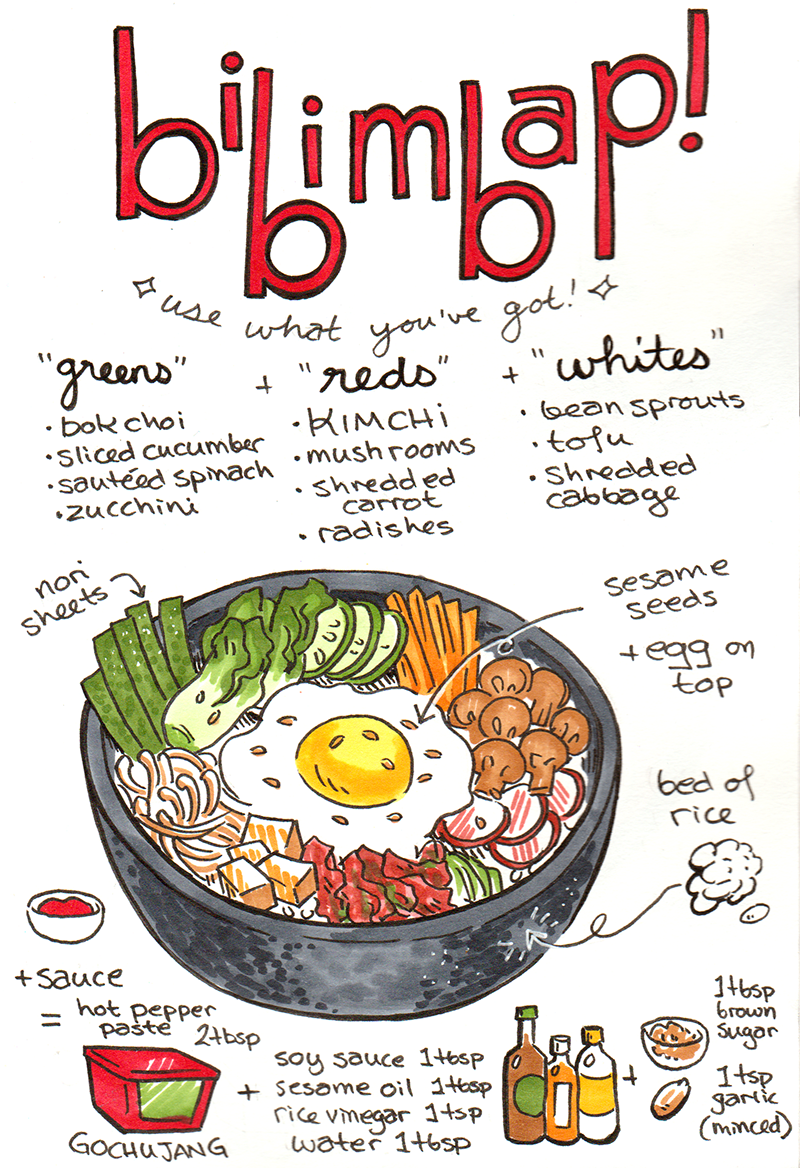 bibimbap!
use what you've got!
"greens" + "reds" + "whites"
• bok choi
• sliced cucumber
• sautéed spinach
• zucchini
• KIMCHi
• mushrooms
• shredded
carrot
• radishes
• bean sprouts
• tofu
• shredded
cabbage
nori
sheets
sesame
seeds
+ egg on
top
bed of
rice
+ sauce
= hot pepper
paste 2tbsp
GOCHUJANG
+
soy sauce 1tbsp
sesame oil 1tbsp
rice vinegar 1tsp
water 1tbsp
+
1tbsp
brown
sugar
1tsp
garlic
(minced)